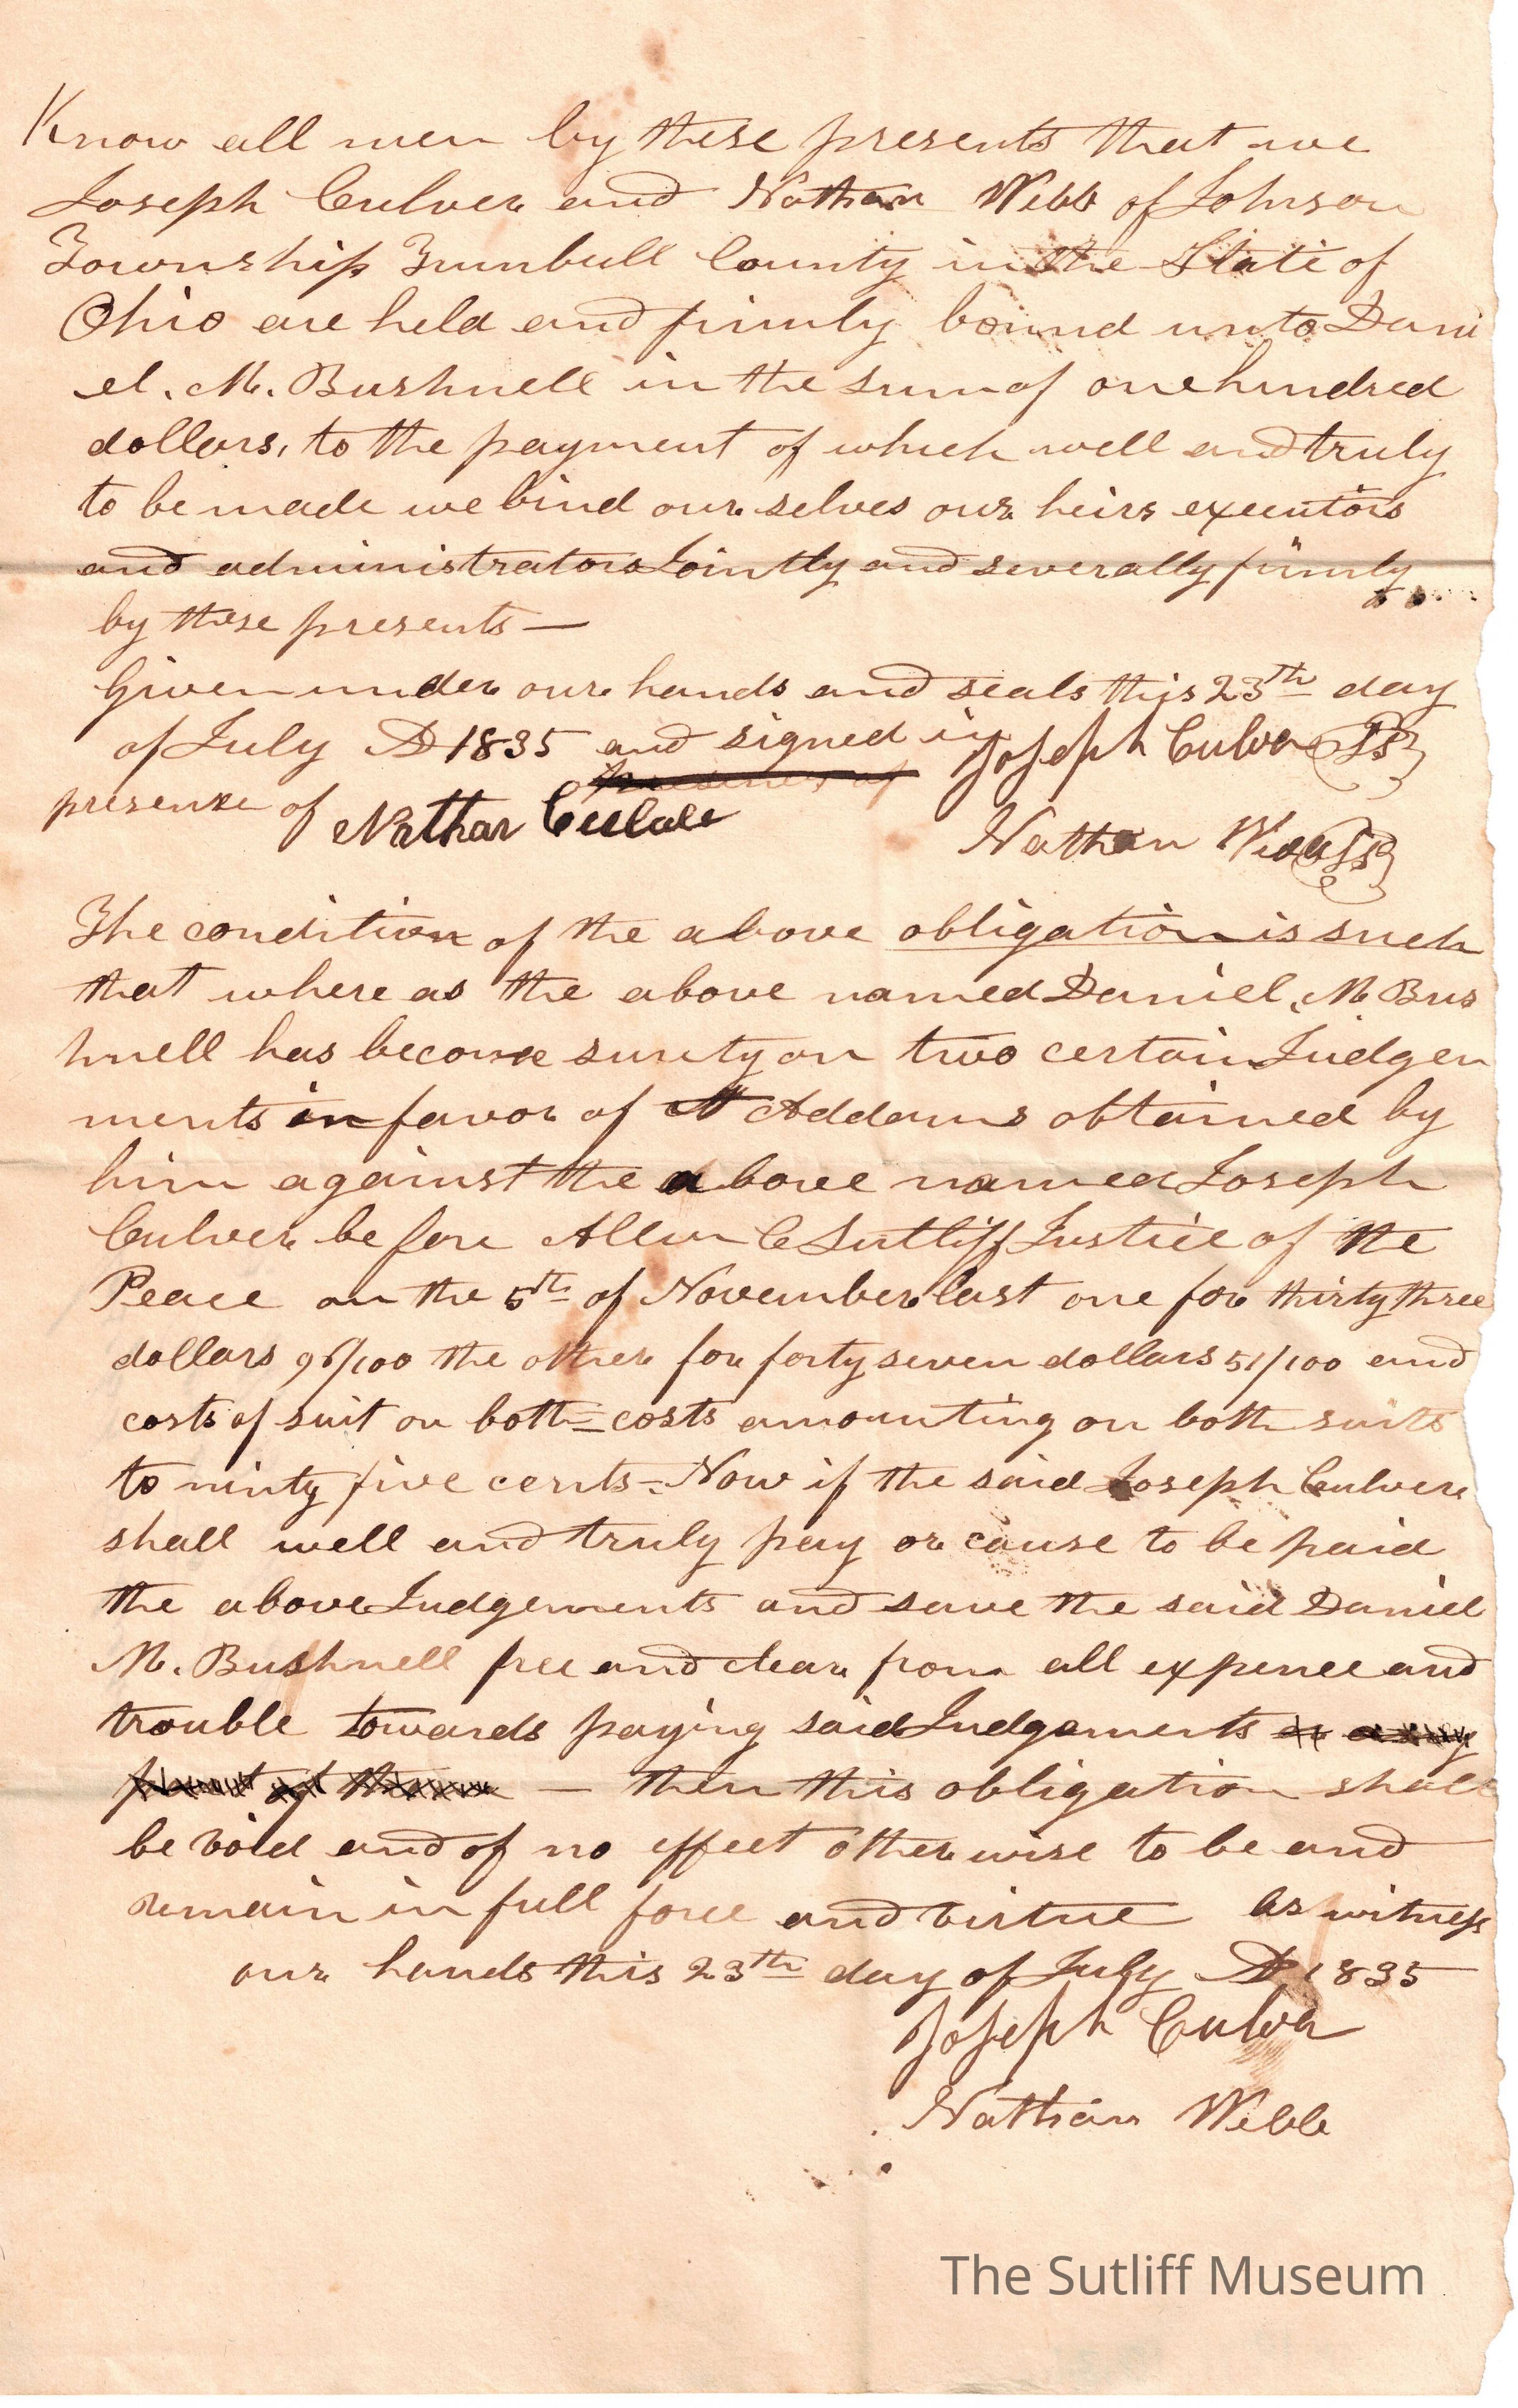 Know all men by these presents that we
Joseph Culver and Nathan Webb of Johnson
Township Trumbull County in the State of
Ohio are held and firmly bound unto Dani
el. M. Bushnell in the sum of one hundred
dollars, to the payment of which well and truly
to be made we bind our selves our heirs executors
and administrators Jointly and severally firmly
by these presents —
Given under our hands and seals this 23th day
of July AD 1835 and signed in Joseph Culver LS
presence of
presence of Nathan
Nathan Webb LS
The condition of the above obligation is such
that where as the above named Daniel. M. Bus
hnell has become surety on two certain Judgem
ments in favor of A Addams obtained by
him against the above named Joseph
Culver before Allen C Sutliff Justice of the
Peace on the 5th of November last one for thirty three
dollars 96/100 the other for forty seven dollars 51/100 and
costs of suit on both = costs amounting on both suits
to ninty five cents = Now if the said Joseph Culver
shall well and truly pay or cause to be paid
the above Judgements and save the said Daniel
M. Bushnell free and clear from all expence and
trouble towards paying said Judgements or any
of them — then this obligation shall
be void and of no effect otherwise to be and
remain in full force and virtue as witness
our hands this 23th day of July AD 1835
Joseph Culver
Nathan Webb
The Sutliff Museum